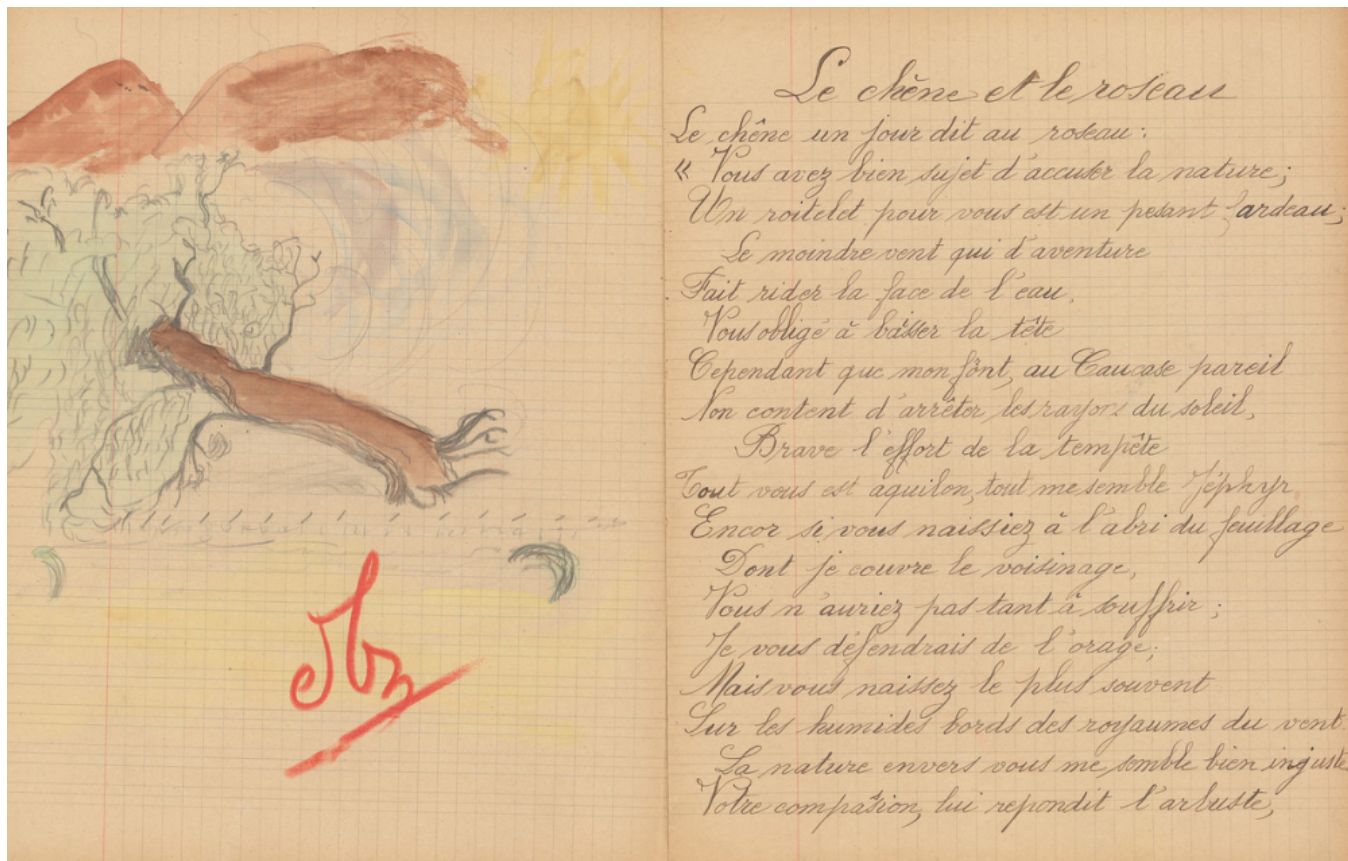 Le chêne et le roseau
Le chêne un jour dit au roseau :
« Vous avez bien sujet d'accuser la nature ;
Un roitelet pour vous est un pesant fardeau ;
Le moindre vent qui d'aventure
Fait rider la face de l'eau,
Vous oblige à baisser la tête
Cependant que mon front, au Caucase pareil
Non content d'arrêter les rayons du soleil,
Brave l'effort de la tempête
Tout vous est aquilon, tout me semble Zéphyr
Encor si vous naissiez à l'abri du feuillage
Dont je couvre le voisinage,
Vous n'auriez pas tant à souffrir ;
Je vous défendrais de l'orage ;
Mais vous naissez le plus souvent
Sur les humides bords des royaumes du vent.
La nature envers vous me semble bien injuste
Votre compassion, lui repondit l'arbuste,